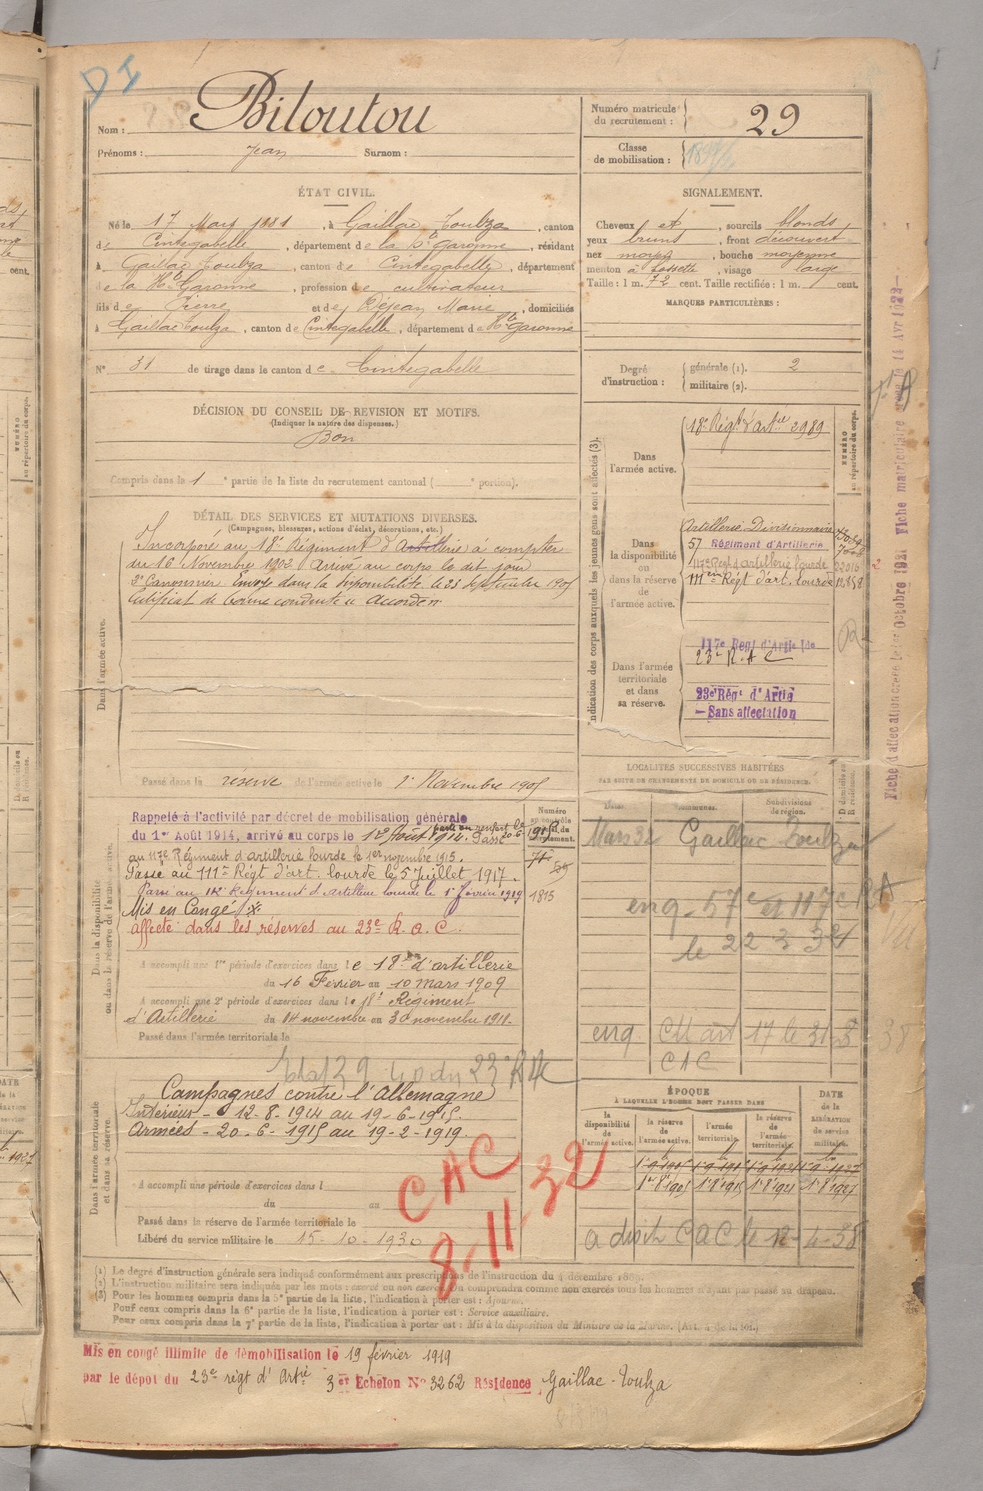 D I
Nom : Biloutou
Prénoms : Jean Surnom :
Numéro matricule du recrutement : 29
Classe de mobilisation :
ÉTAT CIVIL.
Né le 17 Mars 1881, à Gaillac Toulza, canton
de Cintegabelle, département de la Hte Garonne, résidant
à Gaillac Toulza, canton de Cintegabelle, département
de la Hte Garonne, profession de cultivateur
fils de Pierre et de Réjean Marie, domiciliés
à Gaillac Toulza, canton de Cintegabelle, département de Hte Garonne
N° 31 de tirage dans le canton de Cintegabelle
SIGNALEMENT.
Cheveux et, sourcils blonds
yeux bruns, front découvert
nez moyen, bouche moyenne
menton à fossette, visage large
Taille : 1 m. 72 cent. Taille rectifiée : 1 m. cent.
MARQUES PARTICULIÈRES :
Degré d'instruction : générale (1). 2
militaire (2).
DÉCISION DU CONSEIL DE REVISION ET MOTIFS.
(Indiquer la nature des dispenses.)
Bon
Compris dans la 1e partie de la liste du recrutement cantonal ( e portion).
DÉTAIL DES SERVICES ET MUTATIONS DIVERSES.
(Campagnes, blessures, actions d'éclat, décorations, etc.)
Dans l'armée active.
Incorporé au 18e Régiment d'Artillerie à compter
du 16 Novembre 1902 Arrivé au corps le dit jour
2e Canonnier Envoyé dans la disponibilité le 23 Septembre 1905
Certificat de bonne conduite Accordé
Passé dans la réserve de l'armée active le 1er Novembre 1905
Indication des corps auxquels les jeunes gens sont affectés (3).
NUMÉRO au répertoire du corps.
Dans l'armée active.
18e Régt d'artie 2989
Dans la disponibilité ou dans la réserve de l'armée active.
Artillerie Divisionnaire
57 Régiment d'Artillerie
117e Régt d'artillerie lourde 22016
111e Régt d'art. lourde 12858
Dans l'armée territoriale et dans sa réserve.
117e Regt d'Artie lde
23e R.A.C
23e Régt d'Artie
— Sans affectation
Fiche d'affectation créée le 1er Octobre 1921 Fiche matriculaire le 14 Avr 1922
LOCALITÉS SUCCESSIVES HABITÉES
PAR SUITE DE CHANGEMENTS DE DOMICILE OU DE RÉSIDENCE.
Dates. Communes. Subdivisions de région.
Mars 32 Gaillac Toulza
enq - 57e et 117e RA
le 22 3 34
enq. CM art 17 le 31-8 38
CAC
Dans la disponibilité ou dans la réserve de l'armée active.
Rappelé à l'activité par décret de mobilisation générale
du 1er Août 1914, arrivé au corps le 12 Août 1914. parti en renfort le 20-6 1915 Passé
au 117e Régiment d'artillerie lourde le 1er novembre 1915.
Passé au 111e Régt d'art. lourde le 5 Juillet 1917.
Passé au 112e Régiment d'Artillerie lourde le 1er février 1919 1815
Mis en Congé
affecté dans les réserves au 23e R.A.C.
A accompli une 1re période d'exercices dans le 18e d'artillerie
du 16 Février au 10 mars 1909
A accompli une 2e période d'exercices dans le 18e Régiment
d'Artillerie du 14 novembre au 30 novembre 1911.
Passé dans l'armée territoriale le
Dans l'armée territoriale et dans sa réserve.
Campagnes contre l'Allemagne
Intérieur - 12-8-1914 au 19-6-1915.
Armées - 20-6-1915 au 19-2-1919.
A accompli une période d'exercices dans l
du au
Passé dans la réserve de l'armée territoriale le
Libéré du service militaire le 15-10-1930
CAC
8-11-32
ÉPOQUE
À LAQUELLE L'HOMME DOIT PASSER DANS
la disponibilité de l'armée active. la réserve de l'armée active. l'armée territoriale. la réserve de l'armée territoriale.
DATE de la LIBÉRATION du service militaire.
1er 8bre 1905 1er 8bre 1915 1er 8bre 1921 1er 8bre 1927
a droit CAC le 12-4-35
(1) Le degré d'instruction générale sera indiqué conformément aux prescriptions de l'instruction du 4 décembre 1889.
(2) L'instruction militaire sera indiquée par les mots : exercé ou non exercé. On comprendra comme non exercés tous les hommes n'ayant pas passé au drapeau.
(3) Pour les hommes compris dans la 5e partie de la liste, l'indication à porter est : Ajourné.
Pour ceux compris dans la 6e partie de la liste, l'indication à porter est : Service auxiliaire.
Pour ceux compris dans la 7e partie de la liste, l'indication à porter est : Mis à la disposition du Ministre de la Marine.
Mis en congé illimité de démobilisation le 19 février 1919
par le dépôt du 23e régt d'Artie 3er Echelon N° 3262 Résidence Gaillac-Toulza